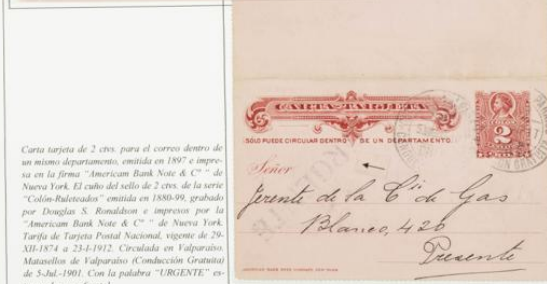 Carta tarjeta de 2 ctvs. para el correo dentro de
un mismo departamento, emitida en 1897 e impre-
sa en la firma "American Bank Note & Cº " de
Nueva York. El cuño del sello de 2 ctvs. de la serie
"Colón-Ruleteados" emitida en 1880-99, grabado
por Douglas S. Ronaldson e impresos por la
"Americam Bank Note & C" " de Nueva York.
Tarifa de Tarjeta Postal Nacional, vigente de 29-
XII-1874 a 23-I-1912. Circulada en Valparaíso.
Matasellos de Valparaíso (Conducción Gratuita)
de 5-Jul.-1901. Con la palabra "URGENTE" es-
CARTA-TARJETA
SÓLO PUEDE CIRCULAR DENTRO DE UN DEPARTAMENTO.
2
Señor
Jerente de la Cia de Gas
Blanco, 420
Presente